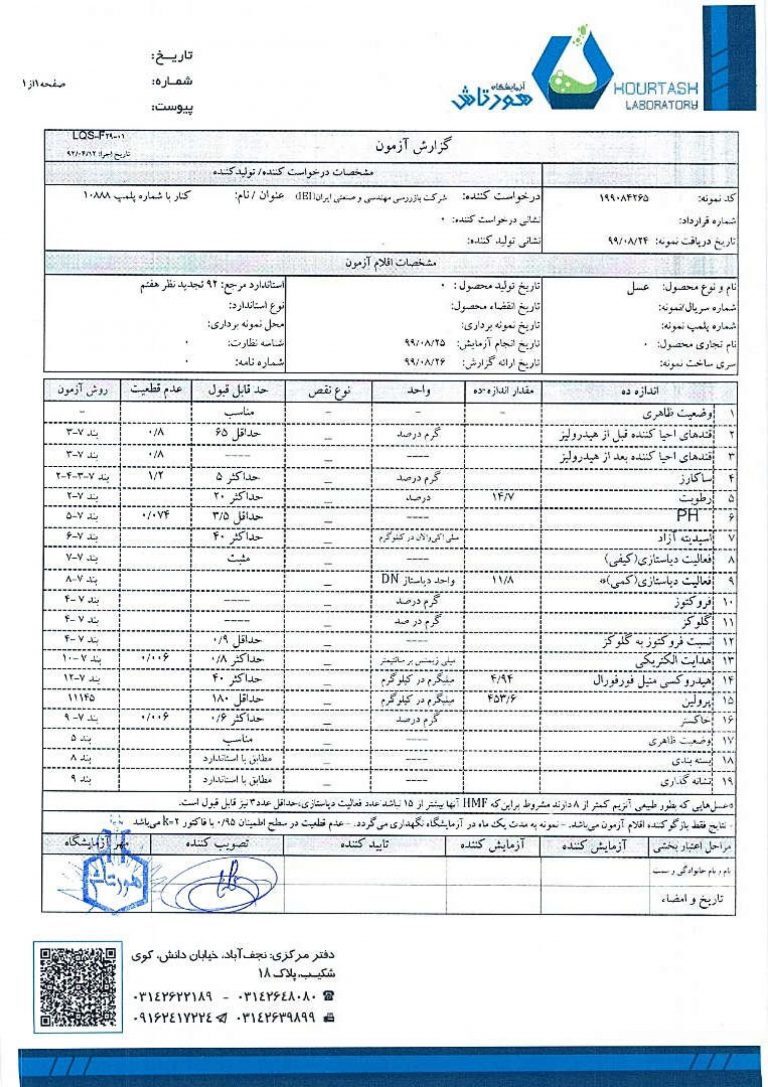 HOURTASH
LABORATORY
آزمایشگاه
هورتاش
تاریخ:
شماره:
صفحه ۱از۱
پیوست:
گزارش آزمون
LQS-F۲۹-۰۱
تاریخ اجرا: ۹۲/۰۴/۱۲
مشخصات درخواست کننده/ تولیدکننده
کد نمونه: ۱۹۹۰۸۴۲۶۵ درخواست کننده: شرکت بازررسی مهندسی و صنعتی ایران(IEI) عنوان / نام: کنار با شماره پلمپ ۱۰۸۸۸
شماره قرارداد: نشانی درخواست کننده: ۰
تاریخ دریافت نمونه: ۹۹/۰۸/۲۴ نشانی تولید کننده:
مشخصات اقلام آزمون
نام و نوع محصول: عسل تاریخ تولید محصول: ۰ استاندارد مرجع: ۹۲ تجدید نظر هفتم
شماره سریال/نمونه: تاریخ انقضاء محصول: نوع استاندارد:
شماره پلمپ نمونه: تاریخ نمونه برداری: محل نمونه برداری:
نام تجاری محصول: ۰ تاریخ انجام آزمایش: ۹۹/۰۸/۲۵ شناسه نظارت: ۰
سری ساخت نمونه: تاریخ ارائه گزارش: ۹۹/۰۸/۲۶ شماره نامه: ۰
اندازه ده مقدار اندازه-ده واحد نوع نقص حد قابل قبول عدم قطعیت روش آزمون
۱ وضعیت ظاهری - - - مناسب -
۲ قندهای احیا کننده قبل از هیدرولیز گرم درصد _ حداقل ۶۵ ۰/۸ بند ۷-۳
۳ قندهای احیا کننده بعد از هیدرولیز ---- _ ---- ۰/۸ بند ۷-۳
۴ ساکارز گرم درصد _ حداکثر ۵ ۱/۲ بند ۷-۳-۴-۲
۵ رطوبت ۱۴/۷ درصد _ حداکثر ۲۰ بند ۷-۲
۶ PH ---- _ حداقل ۳/۵ ۰/۰۷۴ بند ۷-۵
۷ اسیدیته آزاد میلی اکی‌والان در کیلوگرم _ حداکثر ۴۰ بند ۷-۶
۸ فعالیت دیاستازی(کیفی) ---- _ مثبت بند ۷-۷
۹ فعالیت دیاستازی(کمی)* ۱۱/۸ واحد دیاستاز DN _ بند ۷-۸
۱۰ فروکتوز گرم درصد _ ---- بند ۷-۴
۱۱ گلوکز گرم درصد _ ---- بند ۷-۴
۱۲ نسبت فروکتوز به گلوکز ---- _ حداقل ۰/۹ بند ۷-۴
۱۳ هدایت الکتریکی میلی زیمنس بر سانتیمتر _ حداکثر ۰/۸ ۰/۰۰۶ بند ۷-۱۰
۱۴ هیدروکسی متیل فورفورال ۴/۹۴ میلیگرم در کیلوگرم _ حداکثر ۴۰ بند ۷-۱۲
۱۵ پرولین ۴۵۳/۶ میلیگرم در کیلوگرم _ حداقل ۱۸۰ ۱۱۱۴۵
۱۶ خاکستر گرم درصد _ حداکثر ۰/۶ ۰/۰۰۶ بند ۷-۹
۱۷ وضعیت ظاهری ---- _ مناسب بند ۵
۱۸ بسته بندی ---- _ مطابق با استاندارد بند ۸
۱۹ نشانه گذاری ---- _ مطابق با استاندارد بند ۹
*عسل‌هایی که بطور طبیعی آنزیم کمتر از ۸ دارند مشروط براین‌که HMF آنها بیشتر از ۱۵ نباشد عدد فعالیت دیاستازی؛حداقل عدد۳ نیز قابل قبول است.
- نتایج فقط بازگو کننده اقلام آزمون می‌باشد. - نمونه به مدت یک ماه در آزمایشگاه نگهداری می‌گردد. - عدم قطعیت در سطح اطمینان ۰/۹۵ با فاکتور k=۲ می‌باشد
مراحل اعتبار بخشی آزمایش کننده آزمایش کننده تایید کننده تصویب کننده مهر آزمایشگاه
نام و نام خانوادگی و سمت
تاریخ و امضاء
هورتاش
دفتر مرکزی: نجف‌آباد، خیابان دانش، کوی
شکیب، پلاک ۱۸
۰۳۱۴۲۶۲۲۱۸۹ - ۰۳۱۴۲۶۴۸۰۸۰
۰۹۱۶۲۴۱۷۲۲۴ ۰۳۱۴۲۶۳۹۸۹۹